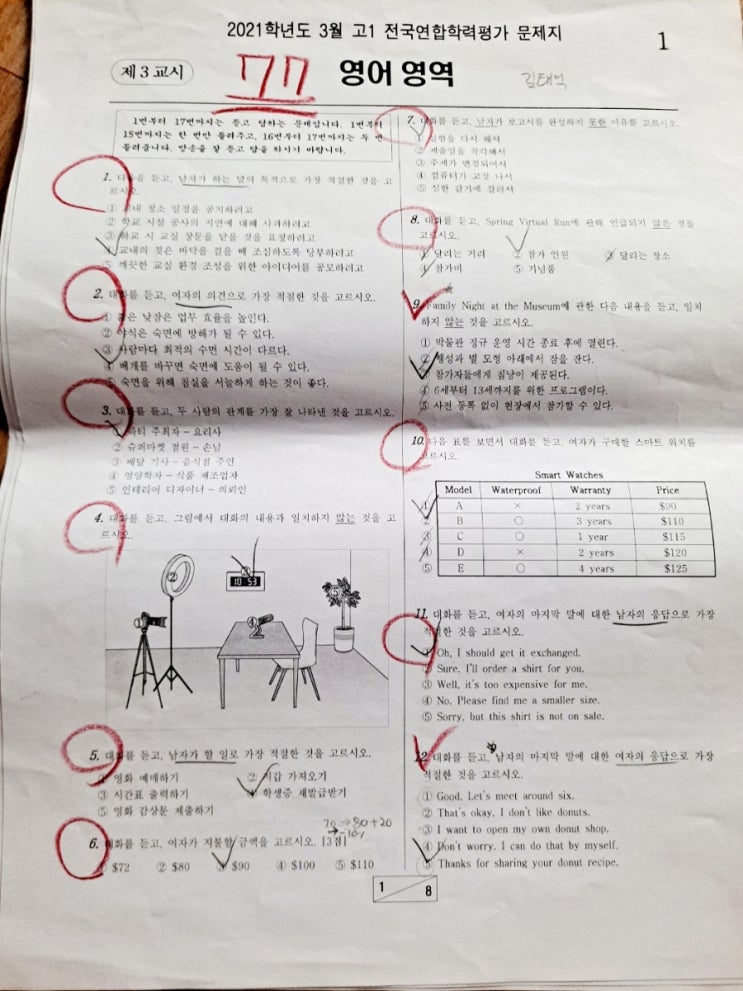 2021학년도 3월 고1 전국연합학력평가 문제지
1
제 3 교시
77
영어 영역
1번부터 17번까지는 듣고 답하는 문제입니다. 1번부터
15번까지는 한 번만 들려주고, 16번부터 17번까지는 두 번
들려줍니다. 방송을 잘 듣고 답을 하시기 바랍니다.
1. 다음을 듣고, 남자가 하는 말의 목적으로 가장 적절한 것을 고
르시오.
① 교내 청소 일정을 공지하려고
② 학교 시설 공사의 지연에 대해 사과하려고
③ 하교 시 교실 창문을 닫을 것을 요청하려고
④ 교내의 젖은 바닥을 걸을 때 조심하도록 당부하려고
⑤ 깨끗한 교실 환경 조성을 위한 아이디어를 공모하려고
2. 대화를 듣고, 여자의 의견으로 가장 적절한 것을 고르시오.
① 짧은 낮잠은 업무 효율을 높인다.
② 야식은 숙면에 방해가 될 수 있다.
③ 사람마다 최적의 수면 시간이 다르다.
④ 베개를 바꾸면 숙면에 도움이 될 수 있다.
⑤ 숙면을 위해 침실을 서늘하게 하는 것이 좋다.
3. 대화를 듣고, 두 사람의 관계를 가장 잘 나타낸 것을 고르시오.
① 파티 주최자 – 요리사
② 슈퍼마켓 점원 – 손님
③ 배달 기사 – 음식점 주인
④ 영양학자 – 식품 제조업자
⑤ 인테리어 디자이너 – 의뢰인
4. 대화를 듣고, 그림에서 대화의 내용과 일치하지 않는 것을 고
르시오.
②
10:53
5. 대화를 듣고, 남자가 할 일로 가장 적절한 것을 고르시오.
① 영화 예매하기
② 지갑 가져오기
③ 시간표 출력하기
④ 학생증 재발급받기
⑤ 영화 감상문 제출하기
70 → 80 + 20
→ -10%
6. 대화를 듣고, 여자가 지불할 금액을 고르시오. [3점]
① $72 ② $80 ③ $90 ④ $100 ⑤ $110
7. 대화를 듣고, 남자가 보고서를 완성하지 못한 이유를 고르시오.
① 실험을 다시 해서
② 제출일을 착각해서
③ 주제가 변경되어서
④ 컴퓨터가 고장 나서
⑤ 심한 감기에 걸려서
8. 대화를 듣고, Spring Virtual Run에 관해 언급되지 않은 것을
고르시오.
① 달리는 거리 ② 참가 인원 ③ 달리는 장소
④ 참가비 ⑤ 기념품
9. Family Night at the Museum에 관한 다음 내용을 듣고, 일치
하지 않는 것을 고르시오.
① 박물관 정규 운영 시간 종료 후에 열린다.
② 행성과 별 모형 아래에서 잠을 잔다.
③ 참가자들에게 침낭이 제공된다.
④ 6세부터 13세까지를 위한 프로그램이다.
⑤ 사전 등록 없이 현장에서 참가할 수 있다.
10. 다음 표를 보면서 대화를 듣고, 여자가 구매할 스마트 워치를
고르시오.
Smart Watches
Model Waterproof Warranty Price
① A × 2 years $90
② B ○ 3 years $110
③ C ○ 1 year $115
④ D × 2 years $120
⑤ E ○ 4 years $125
11. 대화를 듣고, 여자의 마지막 말에 대한 남자의 응답으로 가장
적절한 것을 고르시오.
① Oh, I should get it exchanged.
② Sure. I'll order a shirt for you.
③ Well, it's too expensive for me.
④ No. Please find me a smaller size.
⑤ Sorry, but this shirt is not on sale.
12. 대화를 듣고, 남자의 마지막 말에 대한 여자의 응답으로 가장
적절한 것을 고르시오.
① Good. Let's meet around six.
② That's okay. I don't like donuts.
③ I want to open my own donut shop.
④ Don't worry. I can do that by myself.
⑤ Thanks for sharing your donut recipe.
1 8